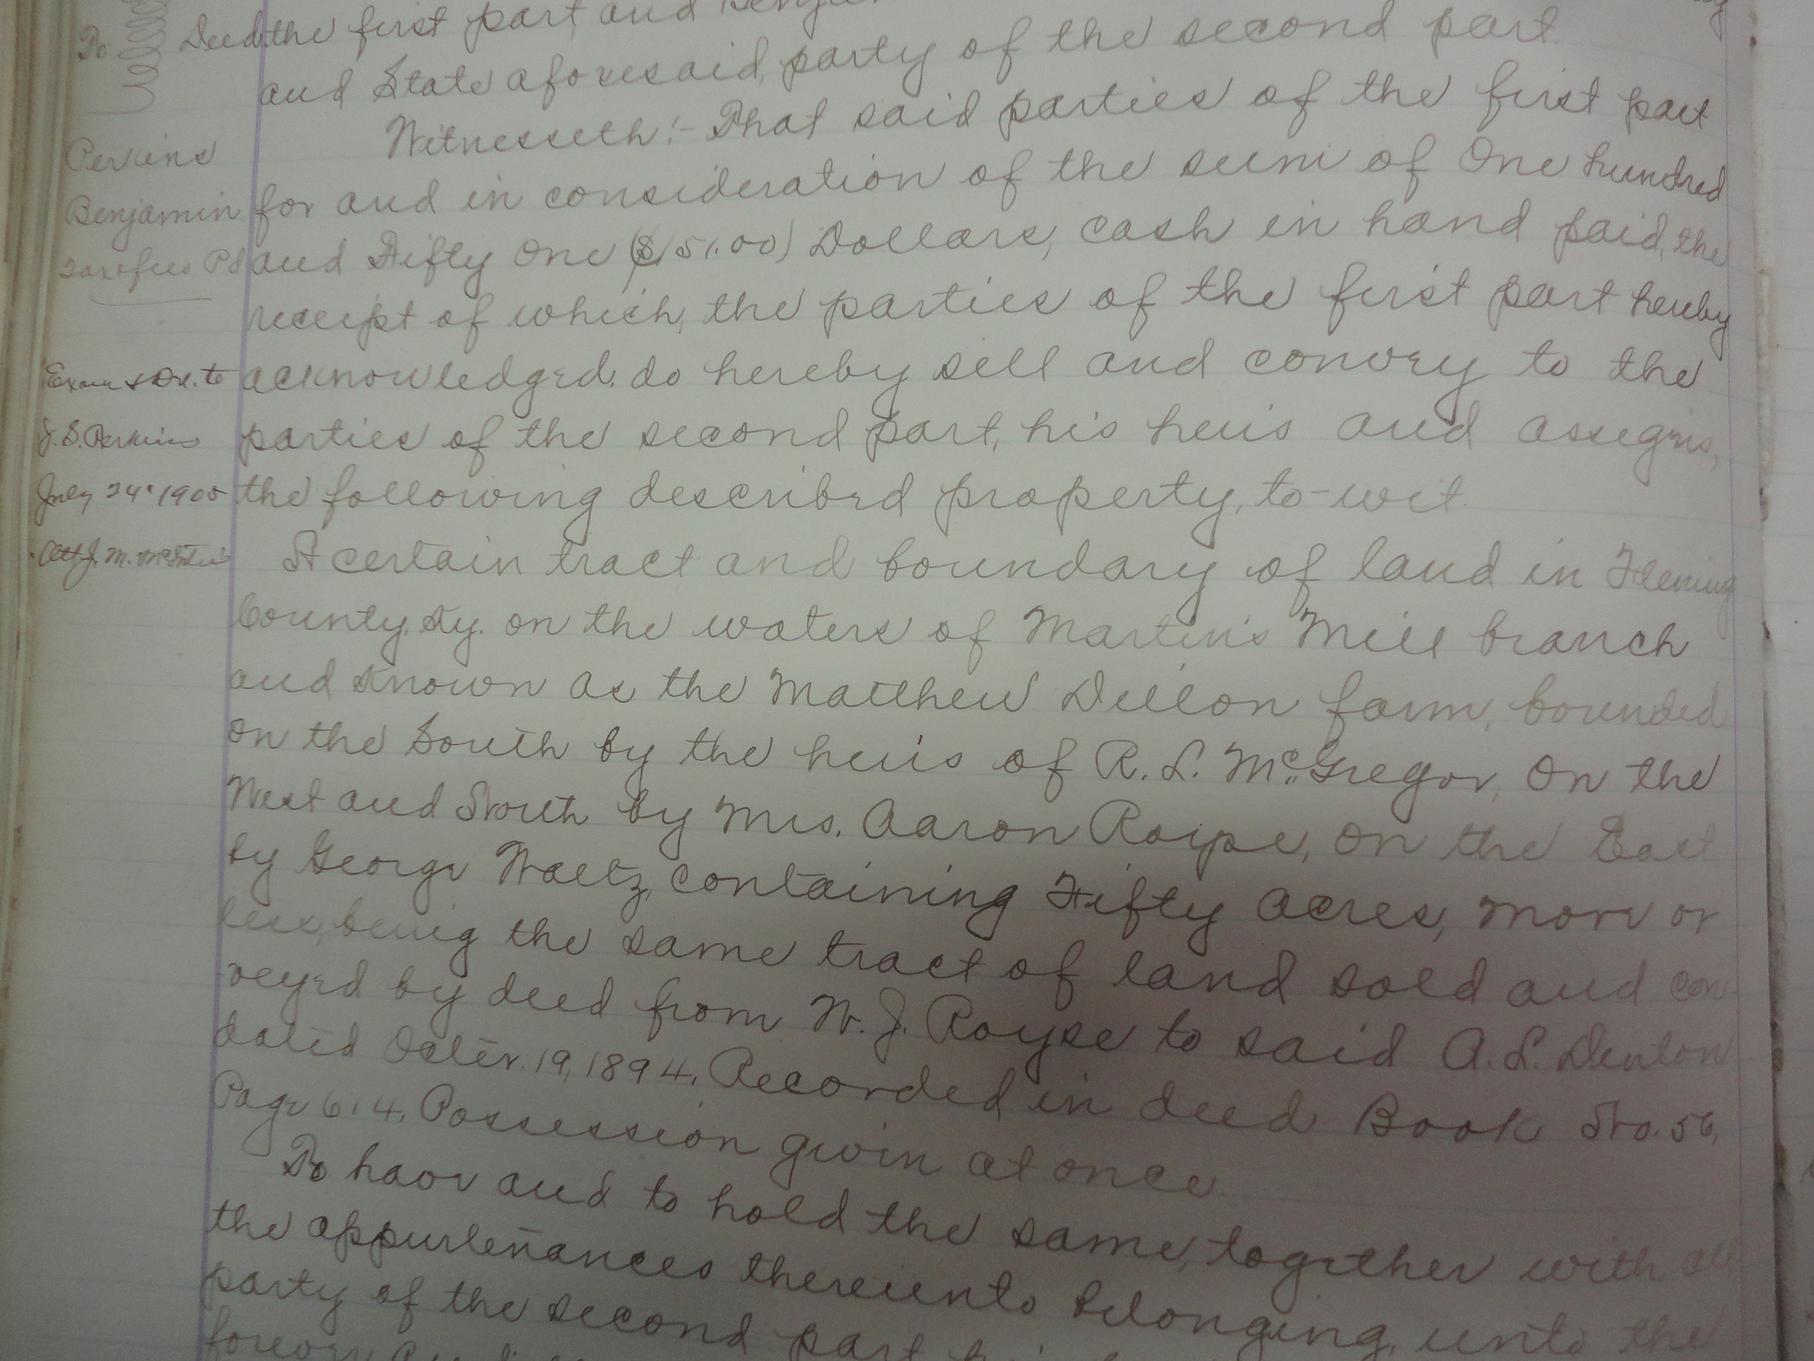 To
Deed
Perkins
Benjamin
Tax & fees Pd
Exam & Del. to
J. S. Perkins
July 24" 1905
Att J. M.
the first part, and
and State aforesaid, party of the second part
Witnesseth:- That said parties of the first part
for and in consideration of the sum of One hundred
and Fifty One ($151.00) Dollars, cash in hand paid, the
receipt of which, the parties of the first part hereby
acknowledged. do hereby sell and convey to the
parties of the second part, his heirs and assigns,
the following described property, to-wit.
A certain tract and boundary of land in Fleming
County, Ky. on the waters of Martin's Mill branch
and known as the Matthew Dillon farm, bounded
on the South by the heirs of R. L. McGregor, On the
West and North by Mrs. Aaron Roipe, on the East
by George Waltz, containing Fifty acres, more or
less, being the same tract of land sold and con-
-veyed by deed from W. J. Royse to said A. L. Denton
dated Octer. 19, 1894, Recorded in deed Book No. 56,
Page 614, Possession given at once.
To have and to hold the same, together with all
the appurtenances thereunto belonging, unto the
party of the second part
forever,